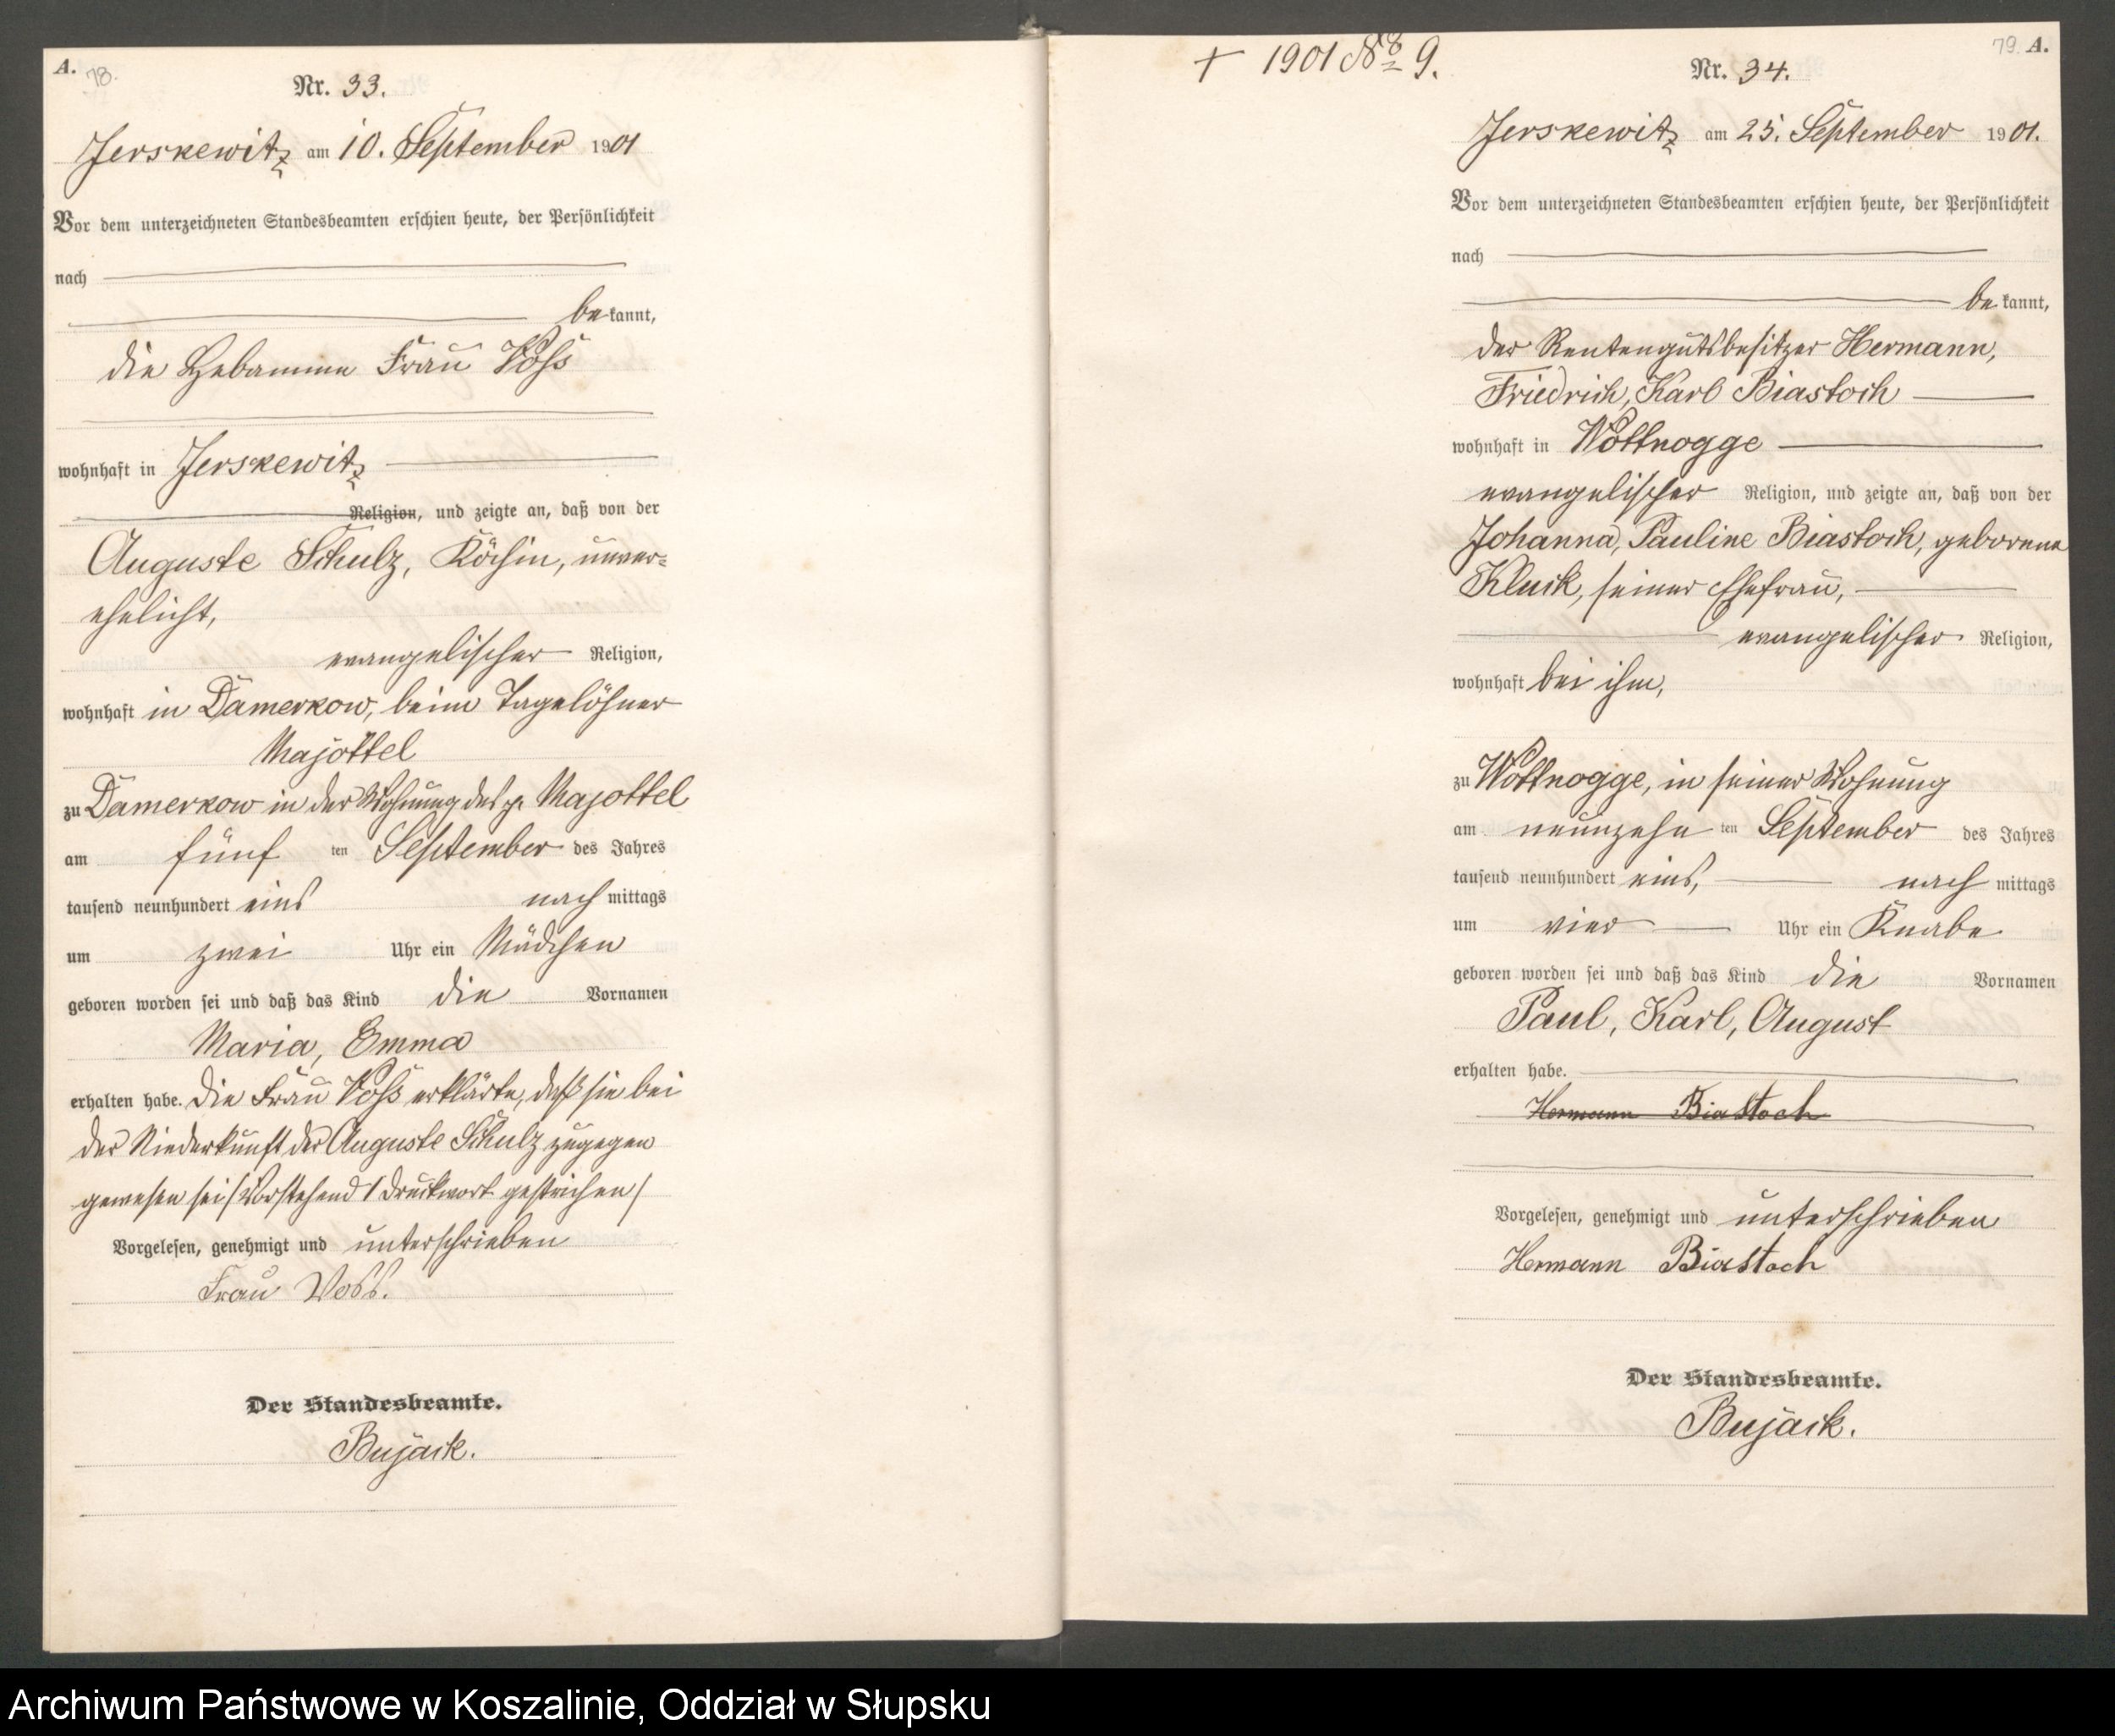 A.
78.
Nr. 33.
Jerskewitz am 10. September 1901
Vor dem unterzeichneten Standesbeamten erschien heute, der Persönlichkeit
nach
bekannt,
die Hebamme Frau Voß
wohnhaft in Jerskewitz
Religion, und zeigte an, daß von der
Auguste Schulz, Köchin, unver=
ehelicht,
evangelischer Religion,
wohnhaft in Damerkow, beim Tagelöhner
Majottel
zu Damerkow in der Wohnung des p. Majottel
am fünf ten September des Jahres
tausend neunhundert eins nachmittags
um zwei Uhr ein Mädchen
geboren worden sei und daß das Kind die Vornamen
Maria, Emma
erhalten habe. Die Frau Voß erklärte, daß sie bei
der Niederkunft der Auguste Schulz zugegen
gewesen sei /Vorstehend 1 Druckwort gestrichen/
Vorgelesen, genehmigt und unterschrieben
Frau Voss.
Der Standesbeamte.
Bujack.
+ 1901 No 9.
79. A.
Nr. 34.
Jerskewitz am 25. September 1901.
Vor dem unterzeichneten Standesbeamten erschien heute, der Persönlichkeit
nach
bekannt,
der Rentengutsbesitzer Hermann,
Friedrich, Karl Biastoch
wohnhaft in Wottnogge
evangelischer Religion, und zeigte an, daß von der
Johanna, Pauline Biastoch, geborene
Kluck, seiner Ehefrau,
evangelischer Religion,
wohnhaft bei ihm,
zu Wottnogge, in seiner Wohnung
am neunzehn ten September des Jahres
tausend neunhundert eins, nachmittags
um vier Uhr ein Knabe
geboren worden sei und daß das Kind die Vornamen
Paul, Karl, August
erhalten habe.
Hermann Biastoch
Vorgelesen, genehmigt und unterschrieben
Hermann Biastoch
Der Standesbeamte.
Bujack.
Archiwum Państwowe w Koszalinie, Oddział w Słupsku